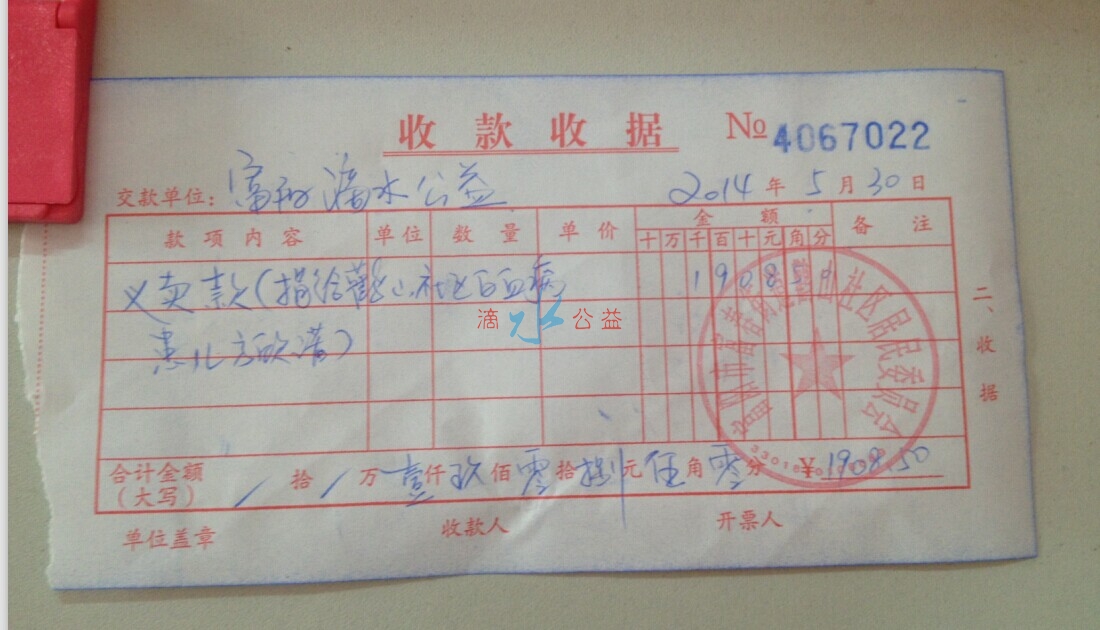 收款收据 № 4067022
交款单位：富阳滴水公益 2014年5月30日
款项内容 单位 数量 单价 金额 备注
十万千百十元角分
义卖款(捐给鹳山社区白血病 1908
滴水公益
患儿方欧满)
二、收据
山社区居民委员会
合计金额 / 拾 / 万壹仟玖佰零拾捌元伍角零分 ￥1908.50
(大写)
单位盖章 收款人 开票人